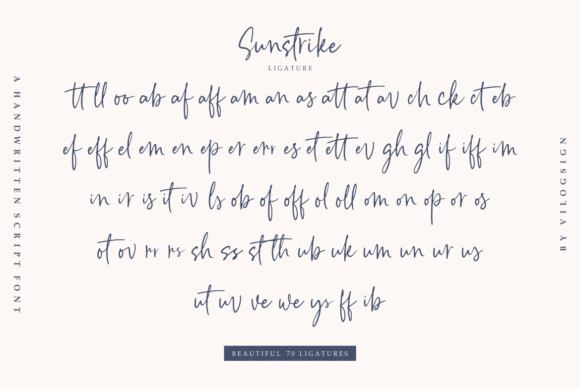 Sunstrike
LIGATURE
A HANDWRITTEN SCRIPT FONT
tt ll oo ab af aff am an as att at av ch ck ct eb
ef eff el em en ep er err es et ett ev gh gl if iff im
in ir is it iv ls ob of off ol oll om on op or os
ot ov rr rs sh ss st th ub uk um un ur us
ut uv ve we ys ff ib
BY VILOGSIGN
BEAUTIFUL 70 LIGATURES